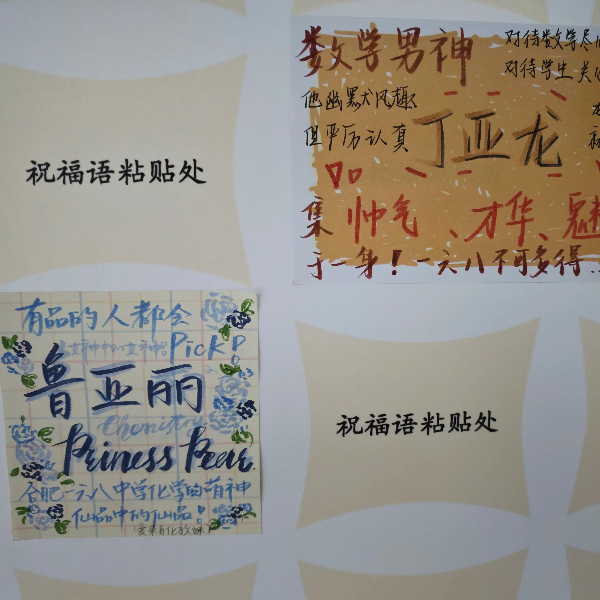 数学男神
对待数学尽
对待学生 关
他幽默风趣
但严厉认真
丁亚龙
集 帅气、才华、魅
于一身！一六八不可多得
祝福语粘贴处
有品的人都会
Pick!
鲁亚丽
Chemistry
合肥一六八中学化学的萌神
仙品中的仙品！
祝福语粘贴处